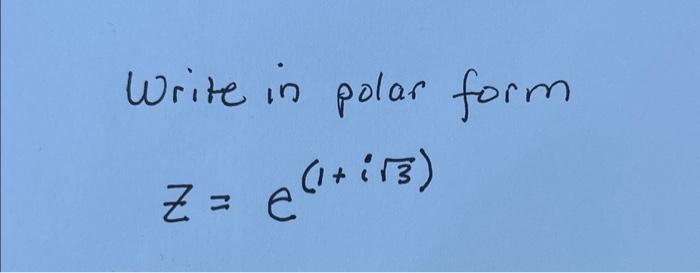 Write in polar form
Z = e^(1+i√3)